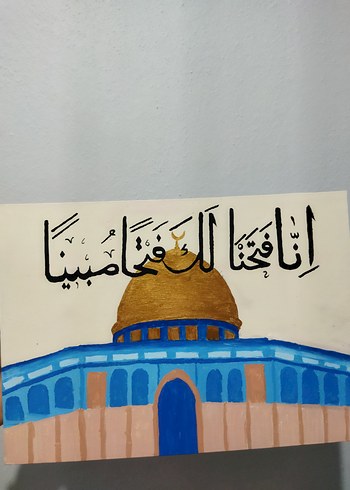 اِنَّا فَتَحْنَا لَكَ فَتْحًا مُبِينًا